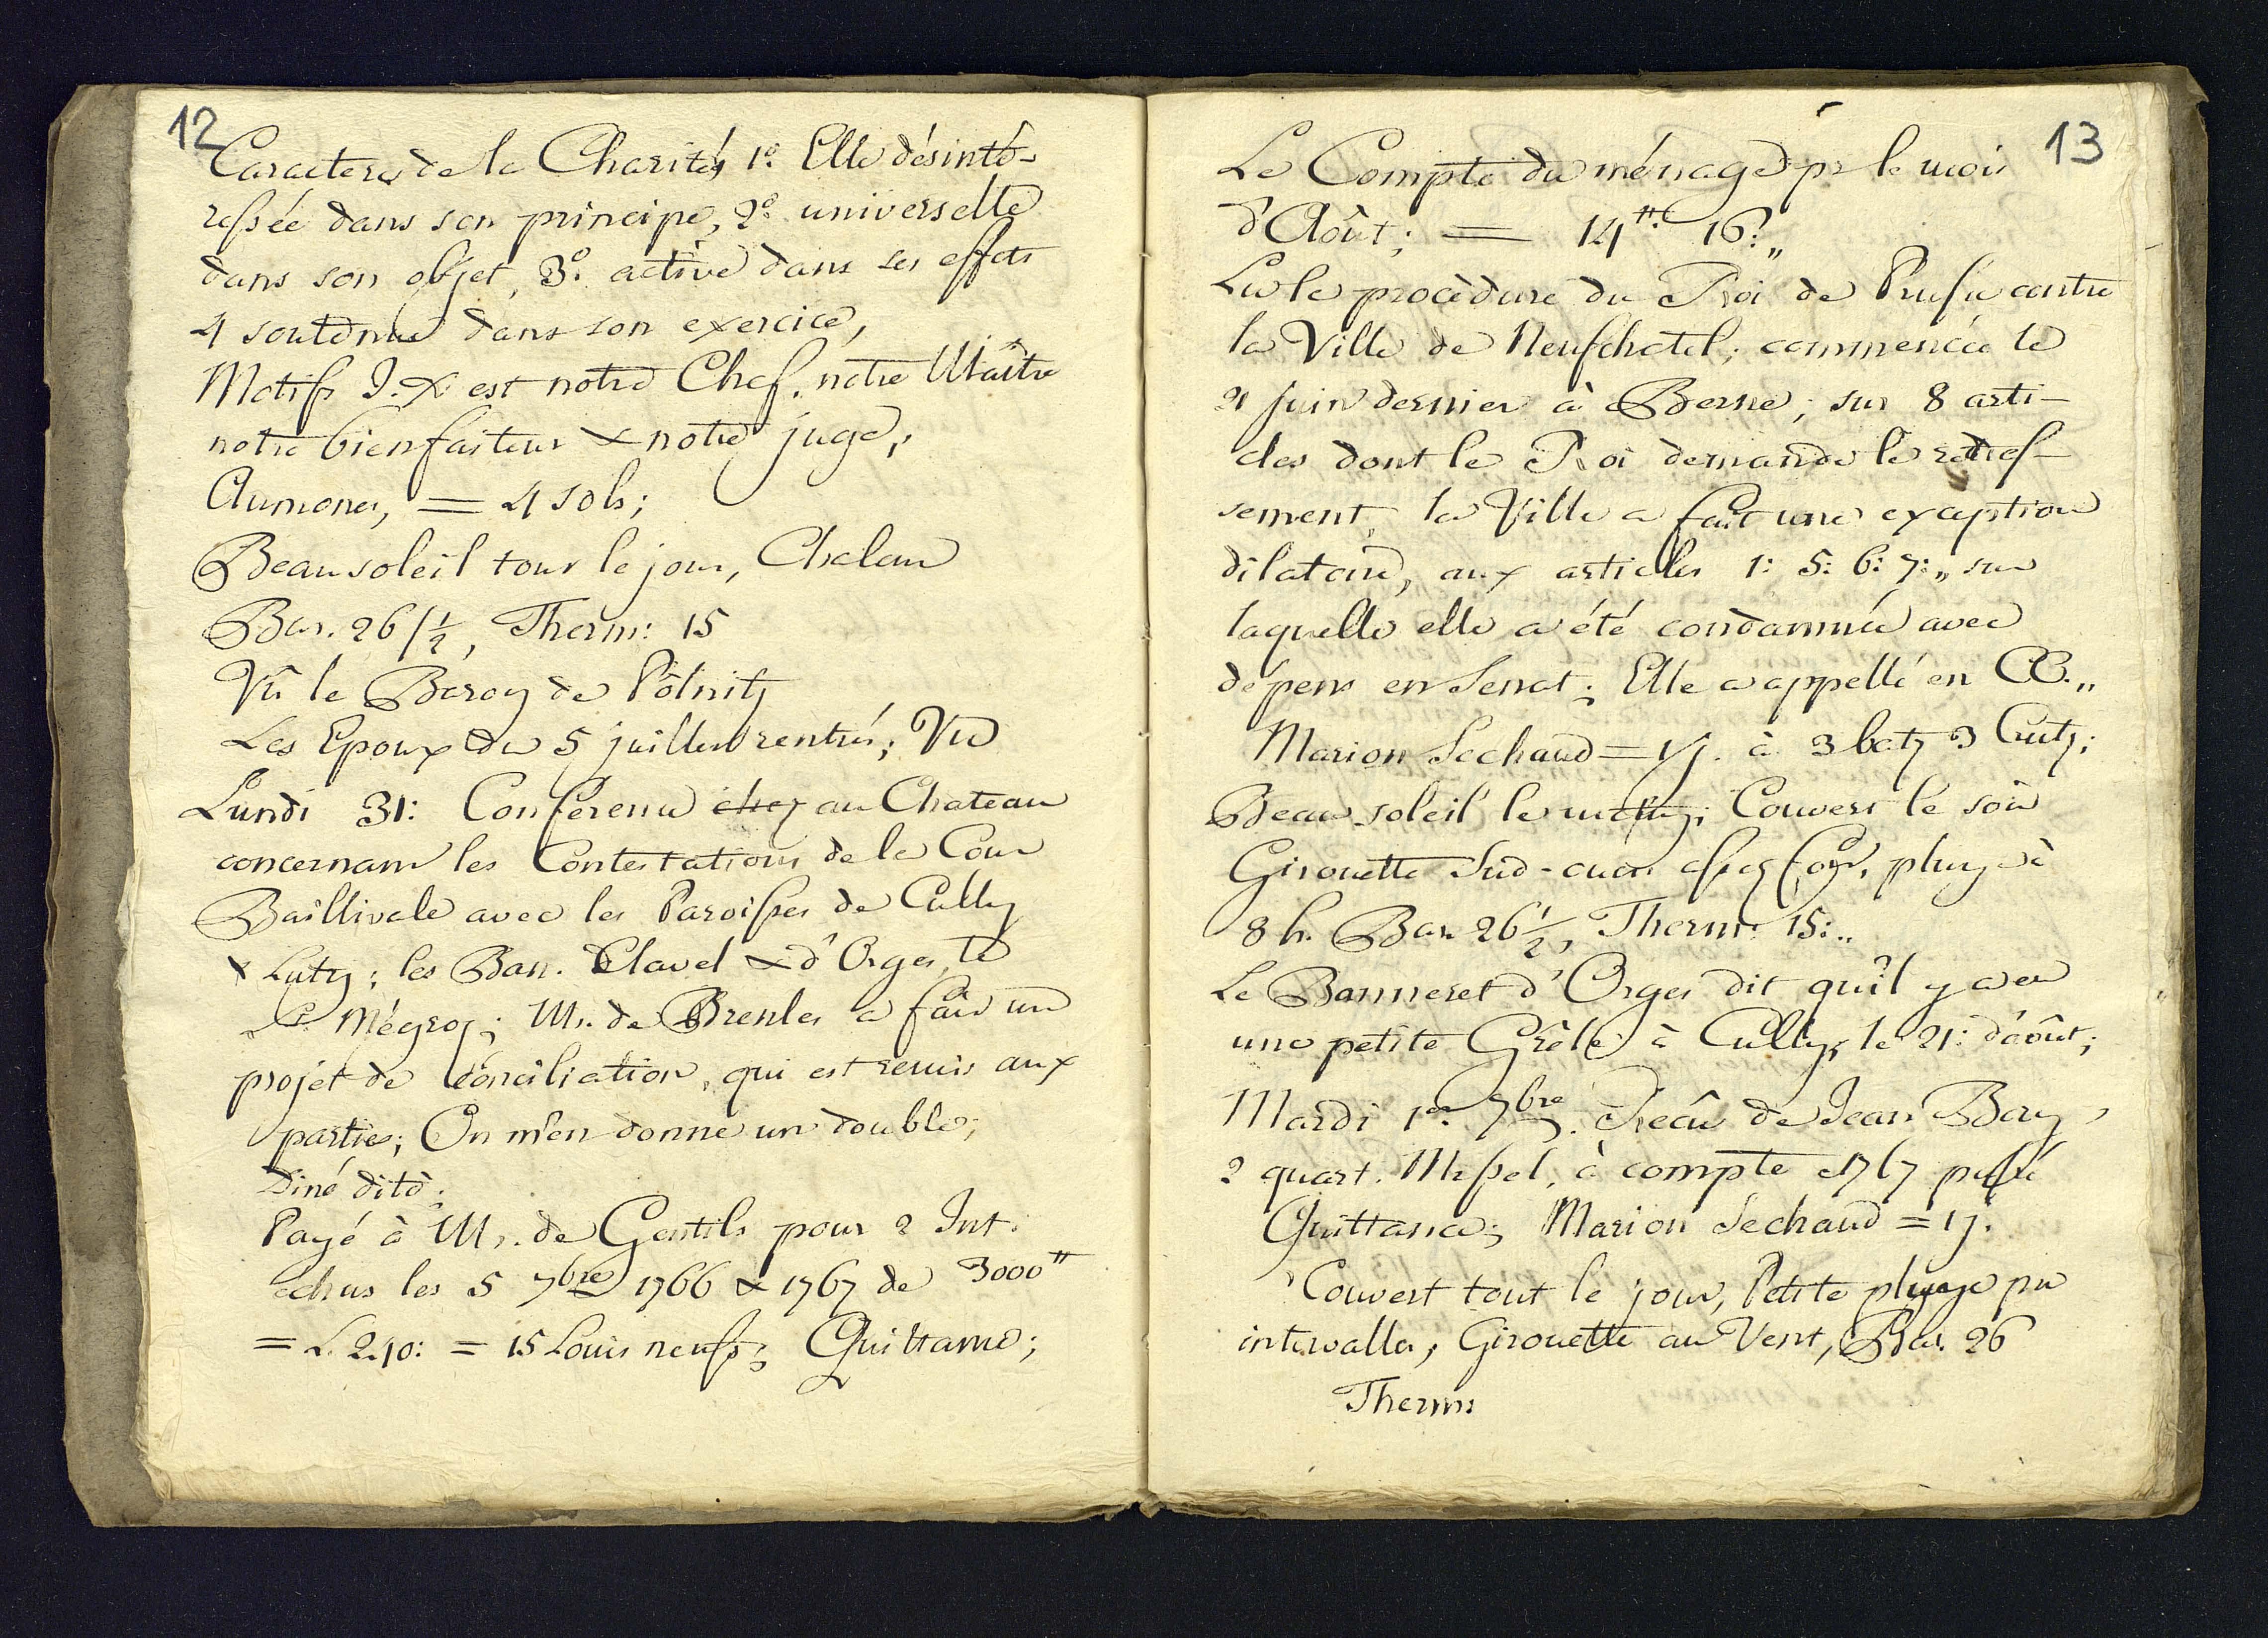 12
Caracteres de la Charité, 1.º Elle désinté-
ressée dans son principe, 2.º universelle
dans son objet, 3.º active dans ses effets
4 soutenue dans son exercice,
Motifs J. X est notre Chef, notre Maître
notre bienfaiteur & notre juge,
Aumones, = 4 sols;
Beau soleil tout le jour, Chaleur
Bar. 26/½, Therm: 15
Vû le Baron de Pölnitz
Les Epoux du 5 juillet rentrés; Vu
Lundi 31: Conference chez au Chateau
concernant les Contestations de la Cour
Baillivale avec les Paroisses de Cully
& Lutry; les Ban. Clavel & d'Orges, le
Mégroz; Mr. de Brenles a fait un
projet de Conciliation, qui est remis aux
parties; On m'en donne un double;
Diné dito;
Payé à Mr. de Gentils pour 2 Int.
echus les 5 7bre 1766 & 1767 de 3000 ₶
= L. 240: = 15 Louis neufs; Quittance;
13
Le Compte du ménage pr le mois
d'Août; = 14 ₶. 16:„
Lu la procédure du Roi de Prusse contre
la Ville de Neufchatel; commencée le
21 Juin dernier à Berne; sur 8 arti-
cles dont le Roi demande le redres-
sement, la Ville a fait une exception
dilatoire, aux articles 1: 5: 6: 7:„ sur
laquelle elle a été condamnée avec
dépens en Senat; Elle a appellé en CC.„
Marion Sechaud = 1j. à 3 batz 3 Crutz;
Beau soleil le matin; Couvert le soir
Girouette Sud-ouest assez fort, pluye à
8 h. Bar 26 ½, Therm: 15:„
Le Banneret d'Orges dit qu'il y a eu
une petite Grêle à Cully, le 21: d'août;
Mardi 1er 7bre. Recû de Jean Bory
2 quart. Messel, à compte 1767 passé
Quittance; Marion Séchaud = 1j.
Couvert tout le jour, Petite pluye par
intervalles, Girouette au Vent, Bar. 26
Therm: